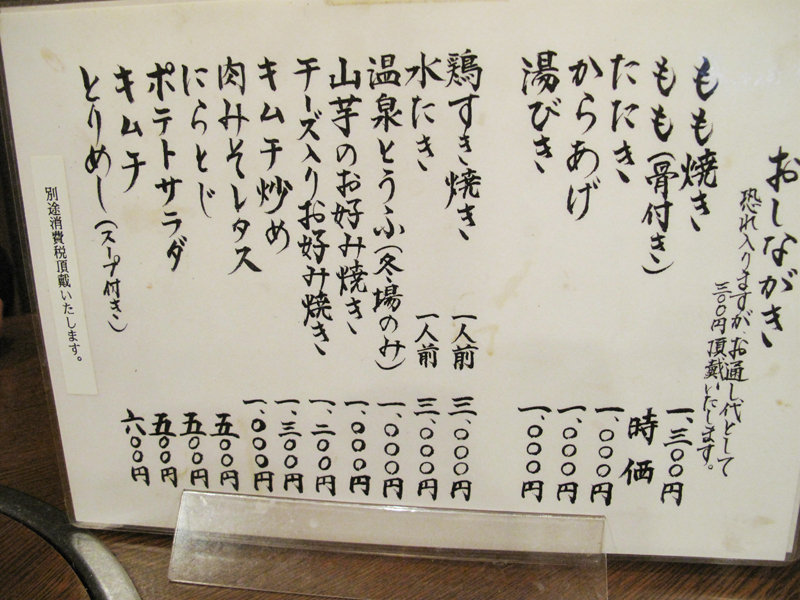 おしながき
恐れ入りますが、お通し代として
三〇〇円頂戴いたします。
もも焼き 一、三〇〇円
もも(骨付き) 時価
たたき 一、〇〇〇円
からあげ 一、〇〇〇円
湯びき 一、〇〇〇円
鶏すき焼き 一人前 三、〇〇〇円
水たき 一人前 三、〇〇〇円
温泉とうふ(冬場のみ) 一、〇〇〇円
山芋のお好み焼き 一、〇〇〇円
チーズ入りお好み焼き 一、二〇〇円
キムチ炒め 一、三〇〇円
肉みそレタス 一、〇〇〇円
にらとじ 五〇〇円
ポテトサラダ 五〇〇円
キムチ 五〇〇円
とりめし(スープ付き) 六〇〇円
別途消費税頂戴いたします。